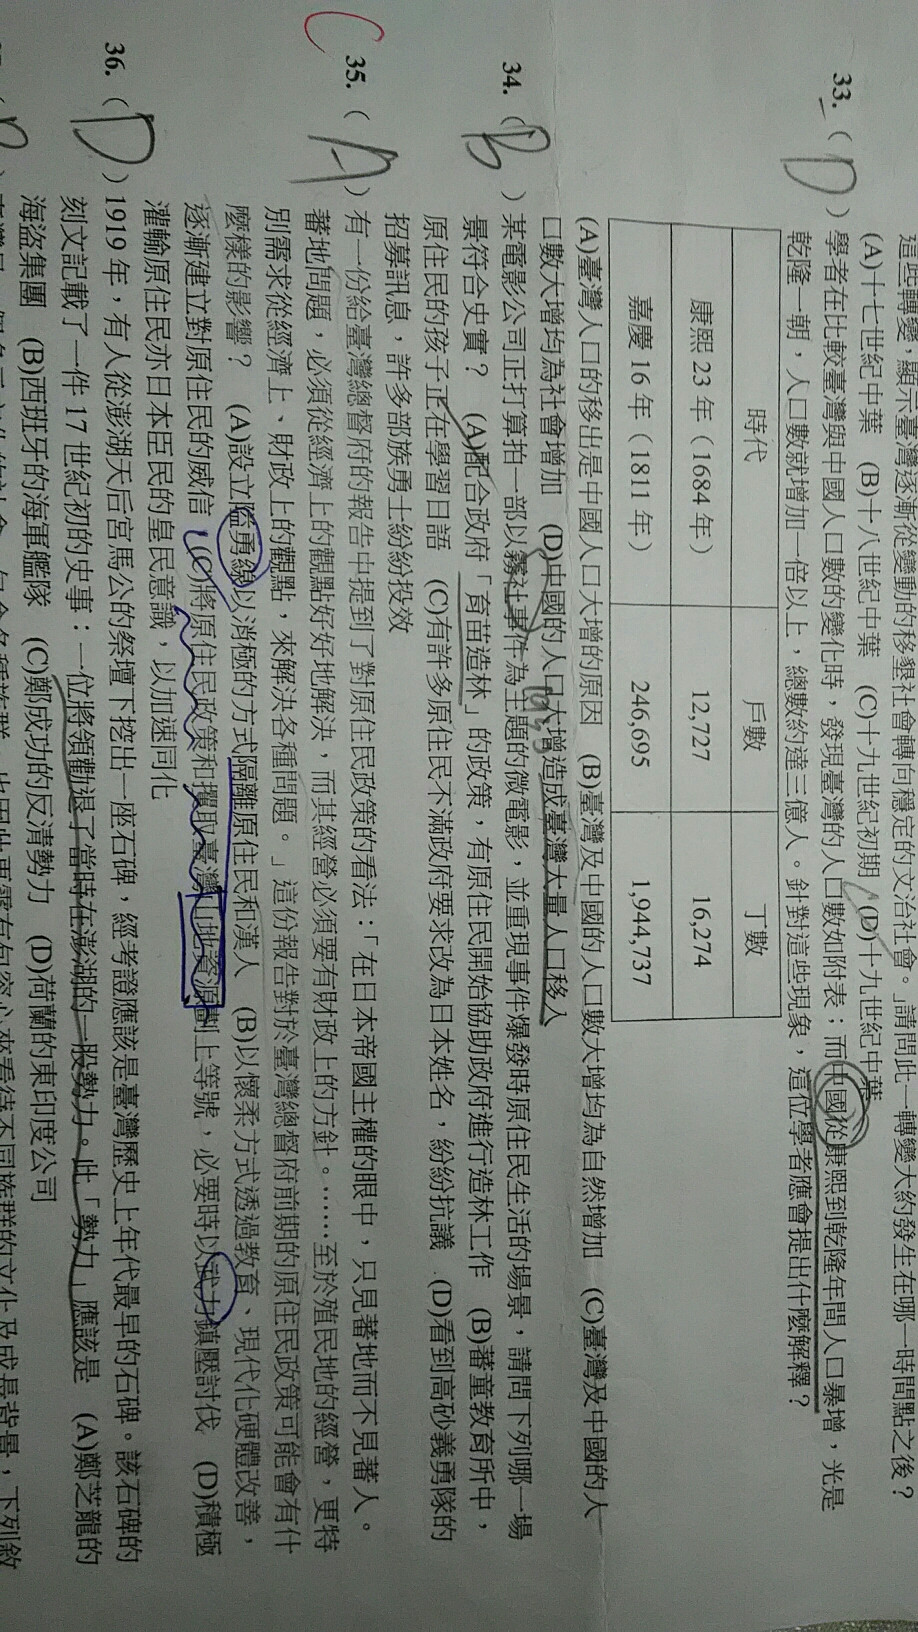 這些轉變，顯示臺灣逐漸從變動的移墾社會轉向穩定的文治社會。」請問此一轉變大約發生在哪一時間點之後？
(A)十七世紀中葉　(B)十八世紀中葉　(C)十九世紀初期　(D)十九世紀中葉
33.（D）學者在比較臺灣與中國人口數的變化時，發現臺灣的人口數如附表；而中國從康熙到乾隆年間人口暴增，光是
乾隆一朝，人口數就增加一倍以上，總數約達三億人。針對這些現象，這位學者應會提出什麼解釋？
時代　戶數　丁數
康熙 23 年（1684 年）　12,727　16,274
嘉慶 16 年（1811 年）　246,695　1,944,737
(A)臺灣人口的移出是中國人口大增的原因　(B)臺灣及中國的人口數大增均為自然增加　(C)臺灣及中國的人
口數大增均為社會增加　(D)中國的人口大增造成臺灣大量人口移入
34.（B）某電影公司正打算拍一部以霧社事件為主題的微電影，並重現事件爆發時原住民生活的場景，請問下列哪一場
景符合史實？　(A)配合政府「育苗造林」的政策，有原住民開始協助政府進行造林工作　(B)蕃童教育所中，
原住民的孩子正在學習日語　(C)有許多原住民不滿政府要求改為日本姓名，紛紛抗議　(D)看到高砂義勇隊的
招募訊息，許多部族勇士紛紛投效
C
35.（A）有一份給臺灣總督府的報告中提到了對原住民政策的看法：「在日本帝國主權的眼中，只見蕃地而不見蕃人。
蕃地問題，必須從經濟上的觀點好好地解決，而其經營必須要有財政上的方針。……至於殖民地的經營，更特
別需求從經濟上、財政上的觀點，來解決各種問題。」這份報告對於臺灣總督府前期的原住民政策可能會有什
麼樣的影響？　(A)設立隘勇線以消極的方式隔離原住民和漢人　(B)以懷柔方式透過教育、現代化硬體改善，
逐漸建立對原住民的威信　(C)將原住民政策和攫取臺灣山地資源劃上等號，必要時以武力鎮壓討伐　(D)積極
灌輸原住民亦日本臣民的皇民意識，以加速同化
36.（D）1919 年，有人從澎湖天后宮馬公的祭壇下挖出一座石碑，經考證應該是臺灣歷史上年代最早的石碑。該石碑的
刻文記載了一件 17 世紀初的史事：一位將領勸退了當時在澎湖的一股勢力。此「勢力」應該是　(A)鄭芝龍的
海盜集團　(B)西班牙的海軍艦隊　(C)鄭成功的反清勢力　(D)荷蘭的東印度公司